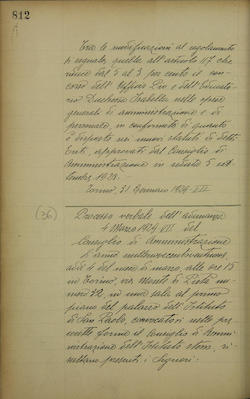 812
Tra le modificazioni al regolamento
è segnata quella all'articolo 117 che
riduce dal 5 al 3 per cento il con-
corso dell'Ufficio Pio e dell'Educato-
rio Duchessa Isabella nelle spese
generali di amministrazione e di
personale, in conformità di quanto
è disposto nei nuovi statuti di detti
Enti, approvati dal Consiglio di
Amministrazione in seduta 5 set-
tembre 1928.
Torino, 31 Gennaio 1929 VII
(36) Processo verbale dell'adunanza
4 Marzo 1929 VII del
Consiglio di Amministrazione
L'anno millenovecentoventinove,
addì 4 del mese di marzo, alle ore 15
in Torino, via Monte di Pietà nu-
mero 32, in una sala al primo
piano del palazzo dell'Istituto
di San Paolo, convocatosi nelle pre-
scritte forme il Consiglio di Ammi-
nistrazione dell'Istituto stesso, ri-
sultano presenti i Signori: